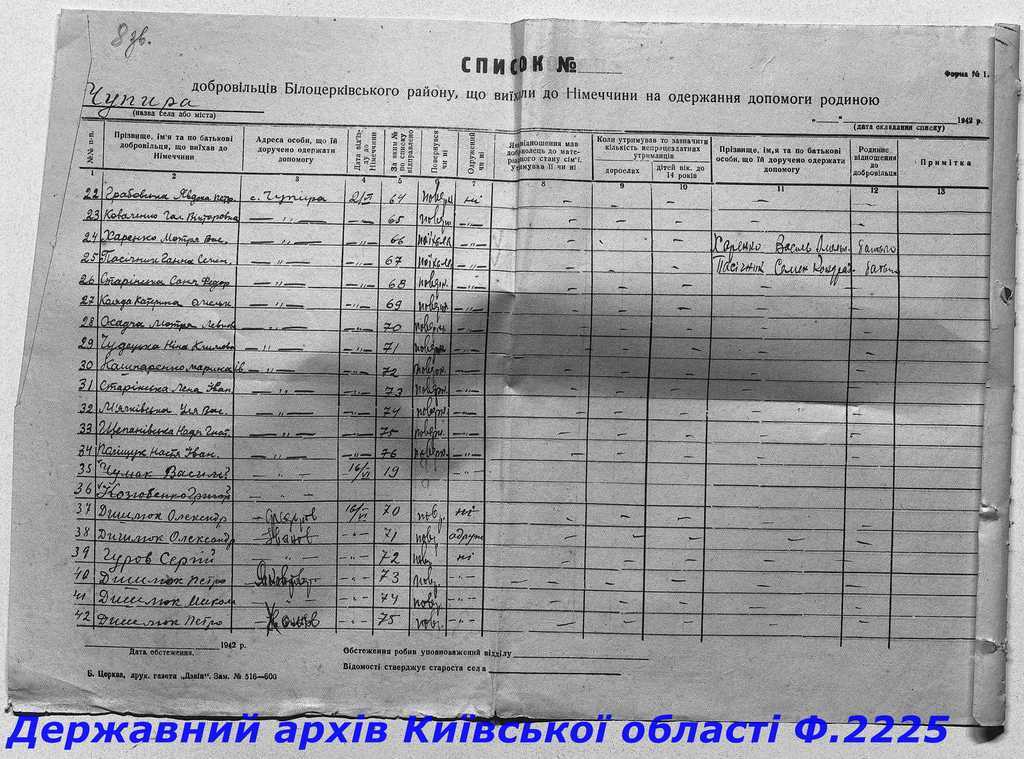 8 зв.
СПИСОК №
Форма № 1.
добровільців Білоцерківського району, що виїхали до Німеччини на одержання допомоги родиною
Чупира
(назва села або міста)
" " 1942 р.
(дата складання списку)
№№ п-п. Прізвище, ім'я та по батькові добровільця, що виїхав до Німеччини Адреса особи, що їй доручено одержати допомогу Дата виїзду до Німеччини За яким № по списку відправлено Повернувся чи ні Одружений чи ні Які відношення мав доброволець до матеріального стану сім'ї, утримував її чи ні Коли утримував то зазначити кількість непрацездатних утриманців дорослих дітей вік. до 14 років Прізвище, ім,я та по батькові особи, що їй доручено одержати допомогу Родинне відношення до добровільця Примітка
1 2 3 5 6 7 8 9 10 11 12 13
22 Грабовина Явдоха Петр. с. Чупира 2/VI 64 поверн ні – – –
23 Коваленко Гал. Вікторовна — " — – " – 65 поверн. – " – – – –
24 Харенко Мотря Вас. — " — – " – 66 поїхала – – – Харенко Василь батько
25 Пасічник Ганна Семен. — " — – " – 67 поїхала – – – Пасічник Семен батько
26 Старінська Соня Федор — " — – " – 68 поверн. – " – – – –
27 Коляда Катерина — " — – " – 69 поверн – " – – – –
28 Осадча Мотря — " — – " – 70 поверн. – " – – – –
29 Чудецька Ніна Климова — " — – " – 71 поверн – " – – – –
30 Кашпаренко Марина Ів. — " — – " – 72 поверн. – " – – – –
31 Старінська Лена Іван — " — – " – 73 поверн. – " – – – –
32 М'ячківська Уля Вас. — " — – " – 74 поверн. – " – – – –
33 Щепанівська Надя Гнат. — " — – " – 75 поверн. – " – – – –
34 Поліщук Настя Іван. — " — – " – 76 поверн. – " – – – –
35 Чумак Василь – " – 16/VI 19
36 Козубенко Григор – " –
37 Дишлюк Олександр 16/VI 70 пов. ні – – –
38 Дишлюк Олександр Іванов – " – 71 пов. одруж – – –
39 Чуров Сергій – " – – " – 72 пов. ні – – –
40 Дишлюк Петро – " – 73 пов. – " – – – –
41 Дишлюк Микола – " – 74 пов. – " – – – –
42 Дишлюк Петро – " – 75 пов. – " – – – –
1942 р.
Дата обстеження.
Обстеження робив уповноважений відділу
Відомості стверджує староста села
Б. Церква, друк. газета „Дзвін". Зам. № 516—600
Державний архів Київської області Ф.2225